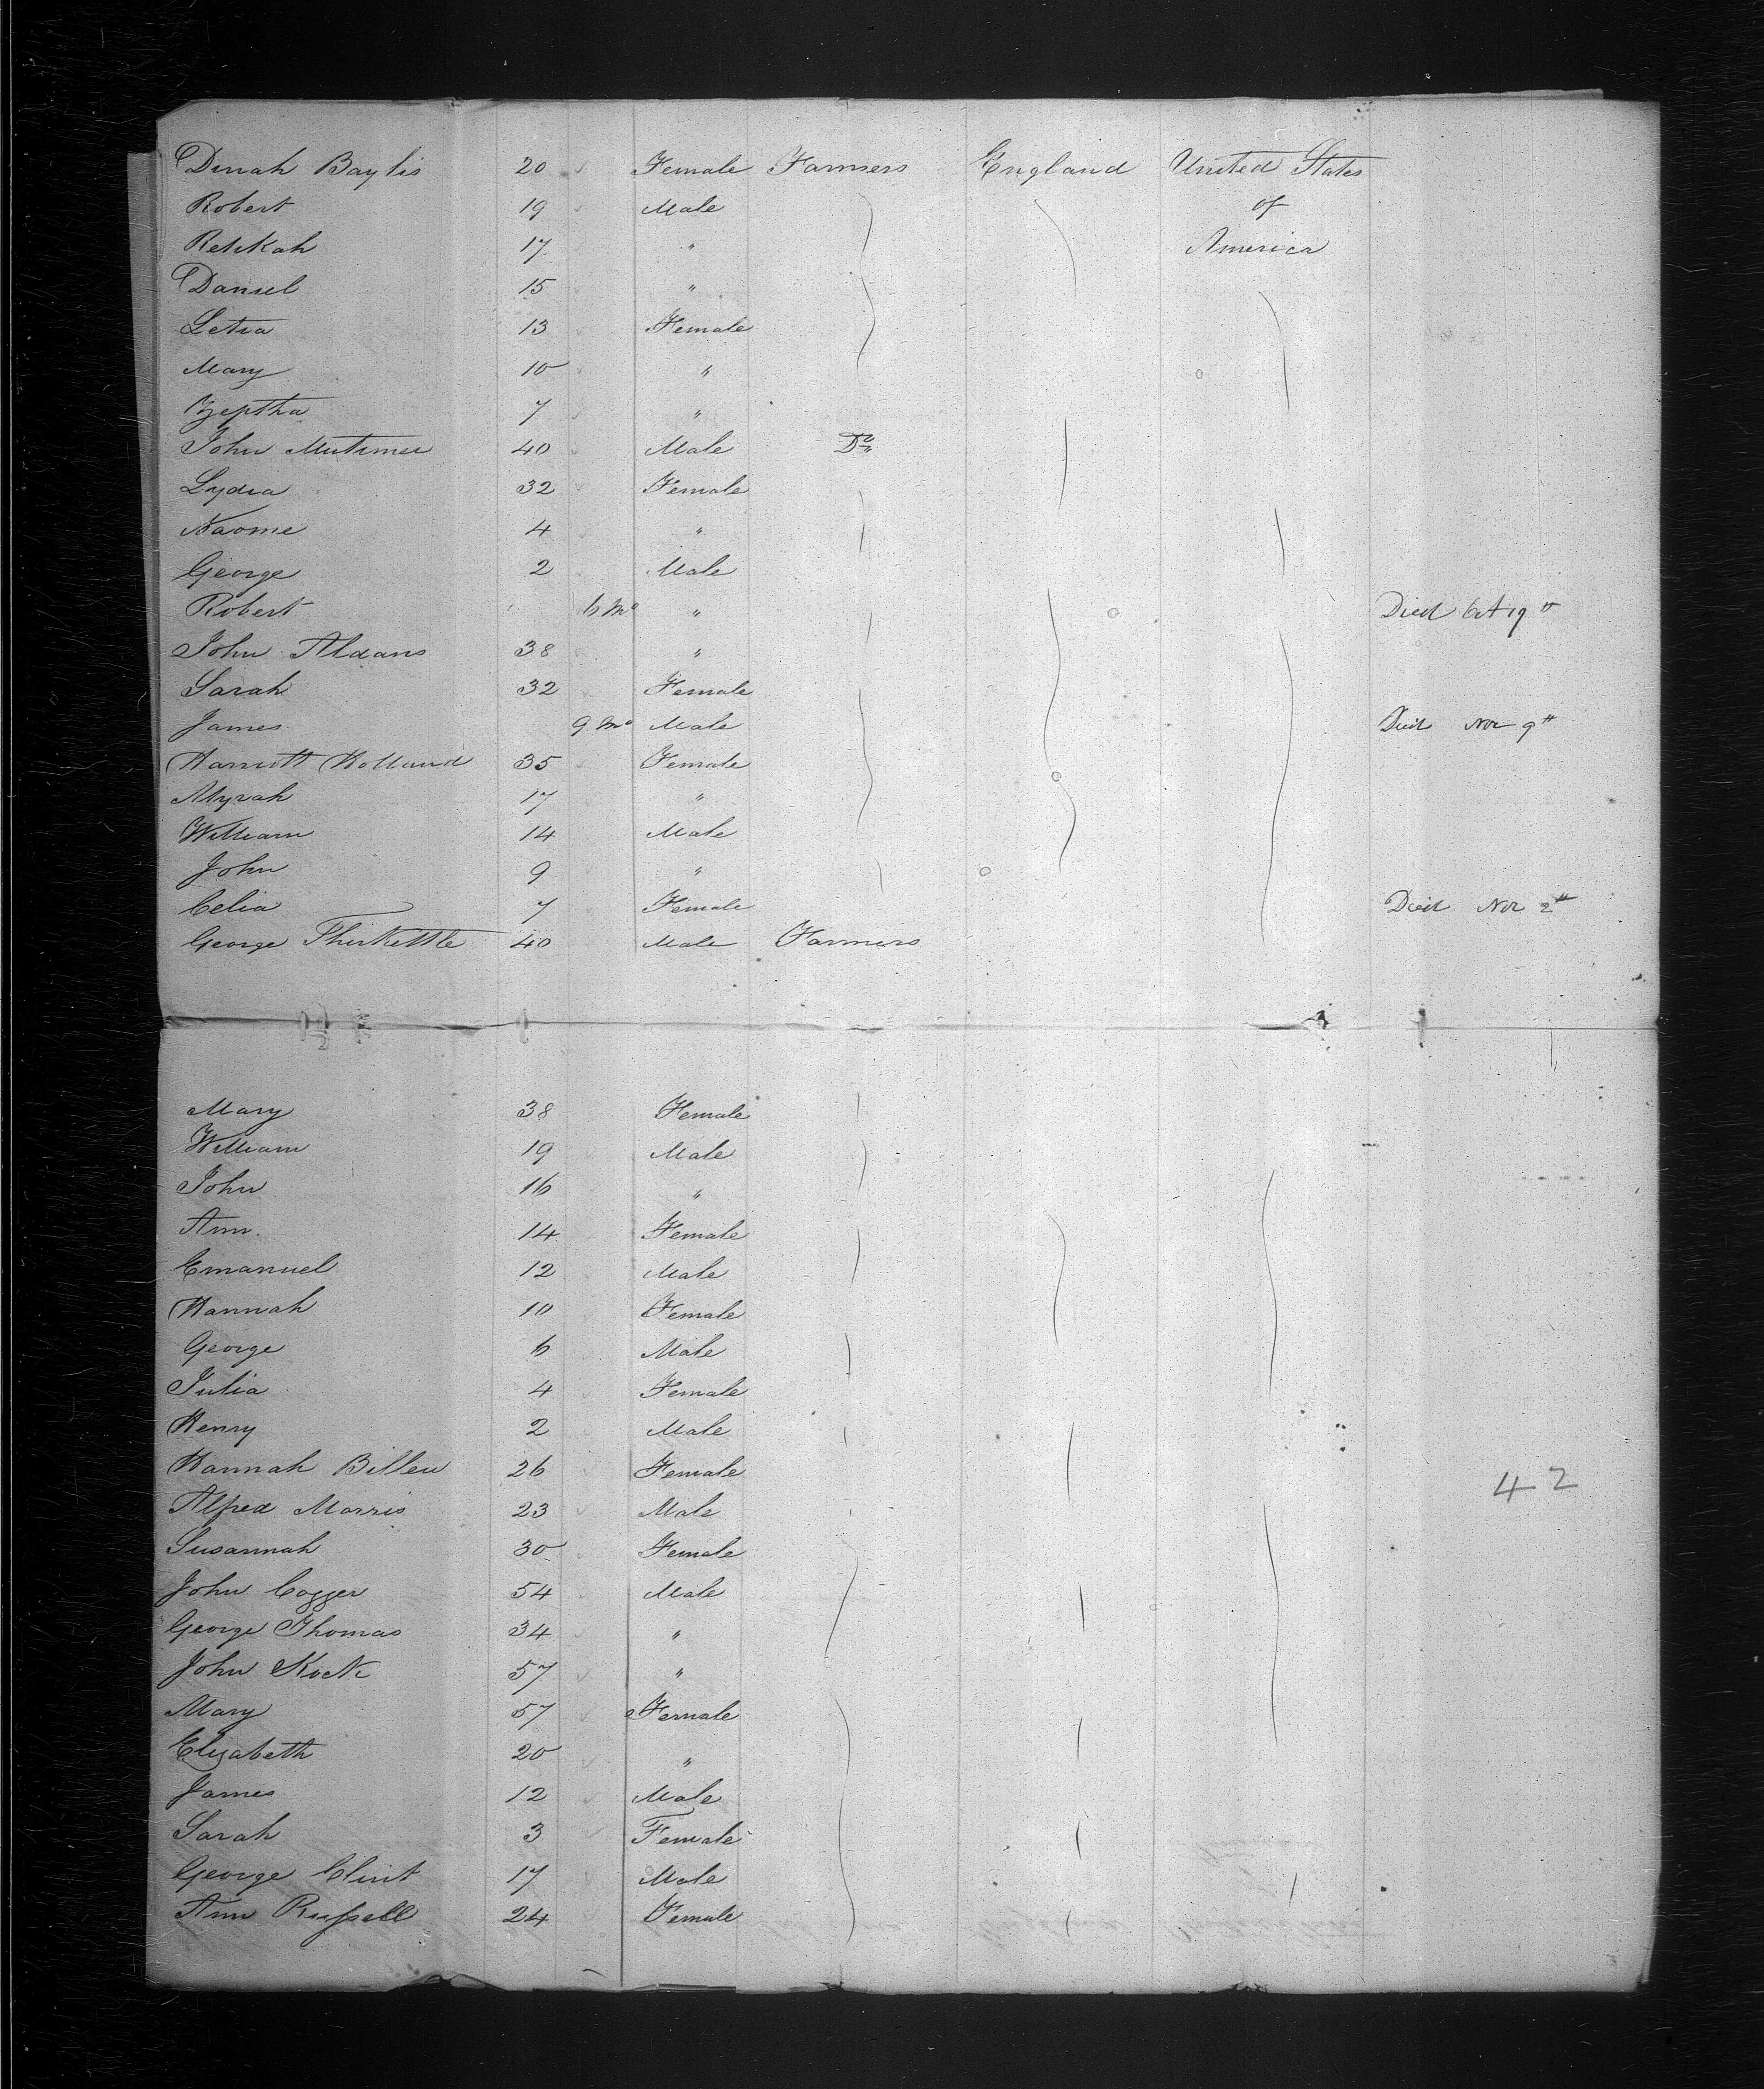 Dinah Baylis 20 Female Farmers England United States
Robert 19 Male of
Rebekah 17 " America
Daniel 15 "
Letia 13 Female
Mary 10 "
Zeptha 7 "
John Mutimer 40 Male Do
Lydia 32 Female
Naome 4 "
George 2 Male
Robert 6 Mo " Died Oct 19th
John Aldans 38 "
Sarah 32 Female
James 9 Mo Male Died Nov 9th
Harriott Holland 35 Female
Myrah 17 "
William 14 Male
John 9 "
Celia 7 Female Died Nov 2th
George Thirkettle 40 Male Farmers
Mary 38 Female
William 19 Male
John 16 "
Ann. 14 Female
Emanuel 12 Male
Hannah 10 Female
George 6 Male
Julia 4 Female
Henry 2 Male
Hannah Billen 26 Female
42
Alfred Morris 23 Male
Susannah 30 Female
John Cogger 54 Male
George Thomas 34 "
John Kock 57 "
Mary 57 Female
Elizabeth 20 "
James 12 Male
Sarah 3 Female
George Clint 17 Male
Ann Russell 24 Female